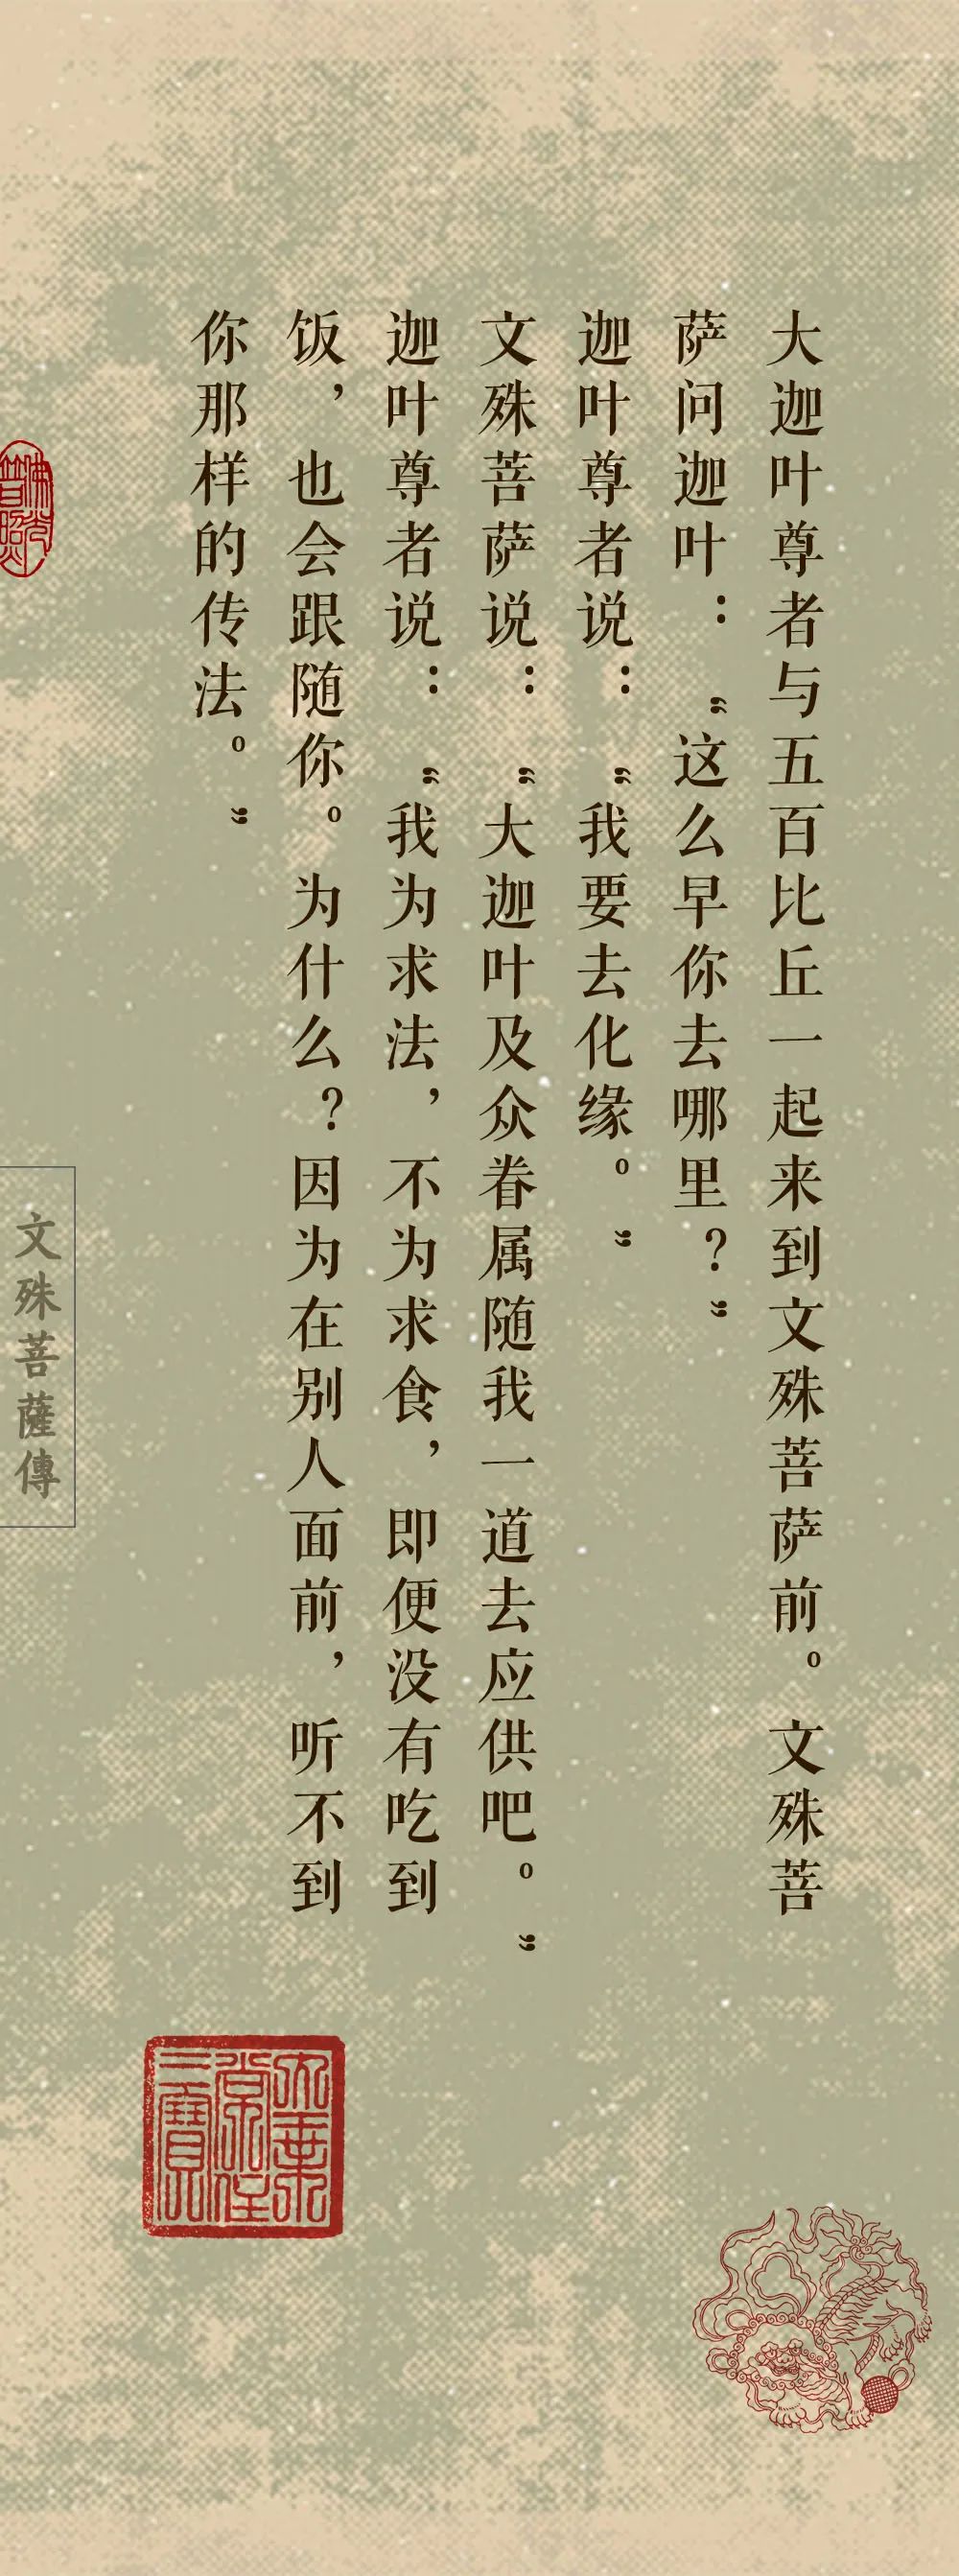 大迦叶尊者与五百比丘一起来到文殊菩萨前。文殊菩
萨问迦叶：“这么早你去哪里？”
迦叶尊者说：“我要去化缘。”
文殊菩萨说：“大迦叶及众眷属随我一道去应供吧。”
迦叶尊者说：“我为求法，不为求食，即便没有吃到
饭，也会跟随你。为什么？因为在别人面前，听不到
你那样的传法。”
文殊菩薩傳
佛光
普照
常住
三寶